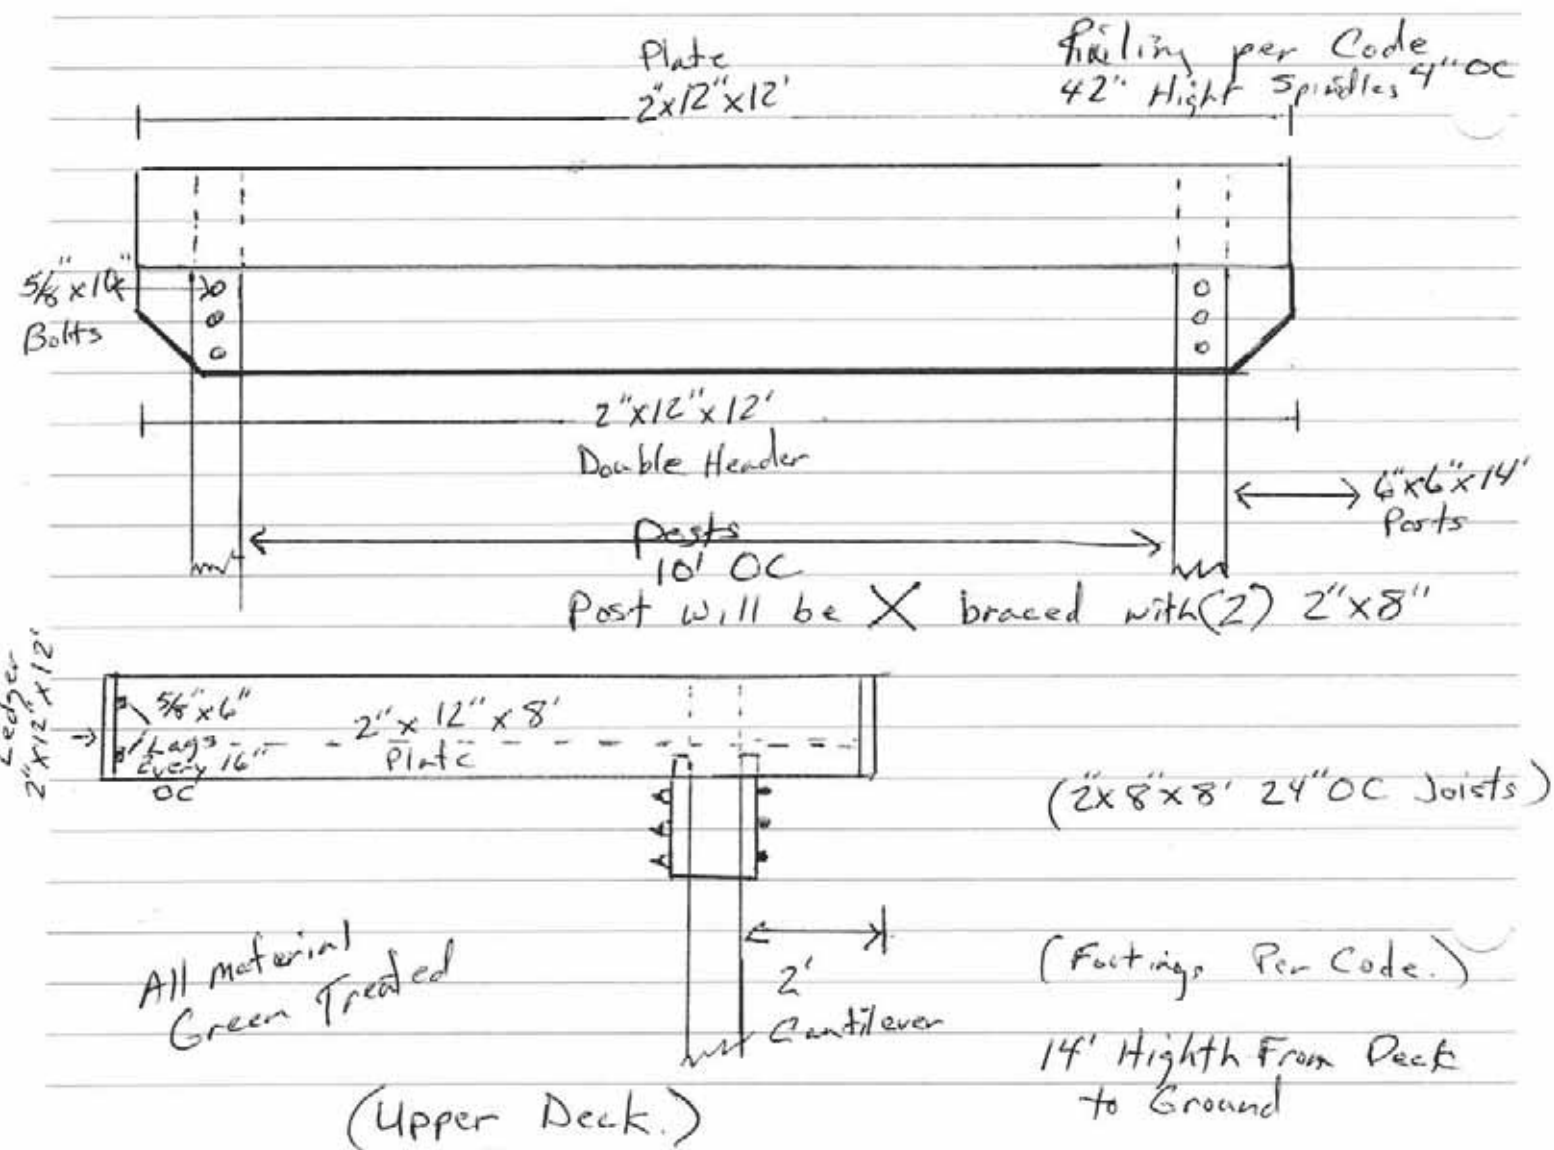 Plate
2"x12"x12'
Railing per Code
42" Hight Spindles 4" OC
5/8" x 10"
Bolts
2"x12"x12'
Double Header
6"x6"x14'
Posts
Posts
10' OC
Post will be X braced with (2) 2"x8"
Ledger
2"x12"x12'
5/8"x6"
Lags
Every 16"
OC
2"x 12"x 8'
Plate
(2"x8"x8' 24" OC Joists)
2'
Cantilever
All material
Green Treated
(Footings Per Code.)
14' Highth From Deck
to Ground
(Upper Deck.)